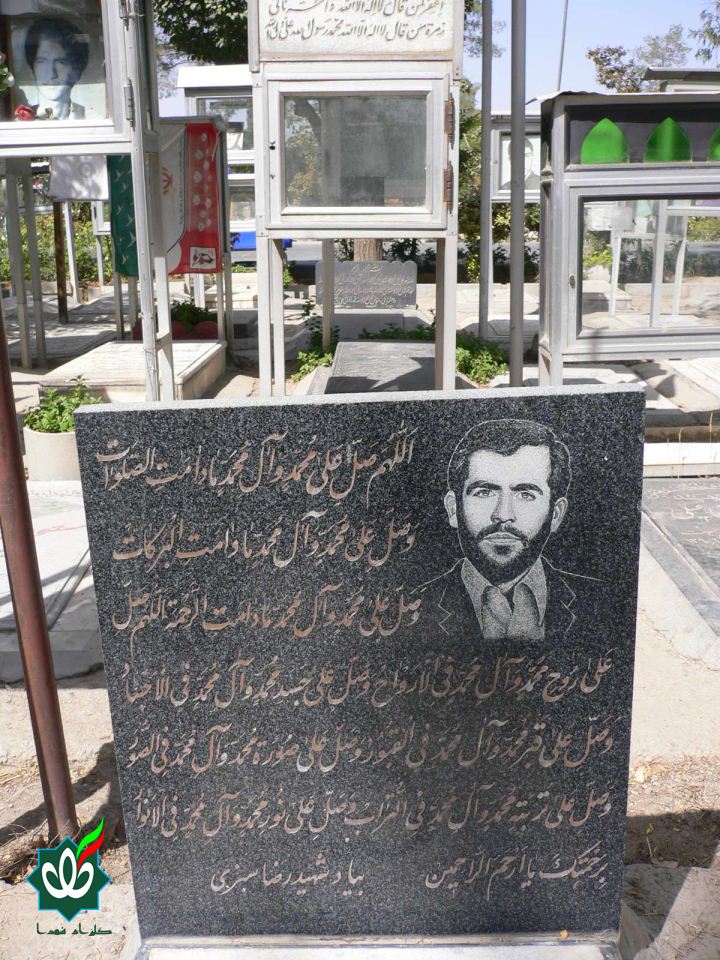 زمرة من قال لا اله الا الله محمد رسول الله علی ولی الله
اللهم صل علی محمد و آل محمد ما دامت الصلوات
وصل علی محمد و آل محمد ما دامت البرکات
وصل علی محمد و آل محمد ما دامت الرحمة اللهم صل
علی روح محمد و آل محمد فی الارواح وصل علی جسد محمد و آل محمد فی الاجساد
وصل علی قبر محمد و آل محمد فی القبور وصل علی صورة محمد و آل محمد فی الصور
وصل علی تربته محمد و آل محمد فی التراب وصل علی نور محمد و آل محمد فی الانوار
برحمتک یا ارحم الراحمین بیاد شهید رضا سبزی